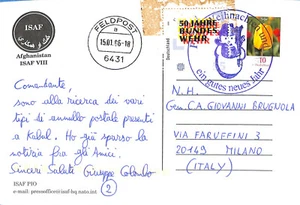 ISAF
Afghanistan
ISAF VIII
FELDPOST
a
15.01.06-18
6431
50 JAHRE
BUNDES
WEHR
Weihnachten
ein gutes neues Jahr
10
N.H.
Gen.C.A. GIOVANNI BRUGNOLA
VIA FARUFFINI 3
20149 MILANO
(ITALY)
Comandante,
sono alla ricerca dei vari
tipi di annullo postale presenti
a Kabul. Ho già sparso la
notizia fra gli Amici.
Sinceri Saluti Giuseppe Colombo
2
ISAF PIO